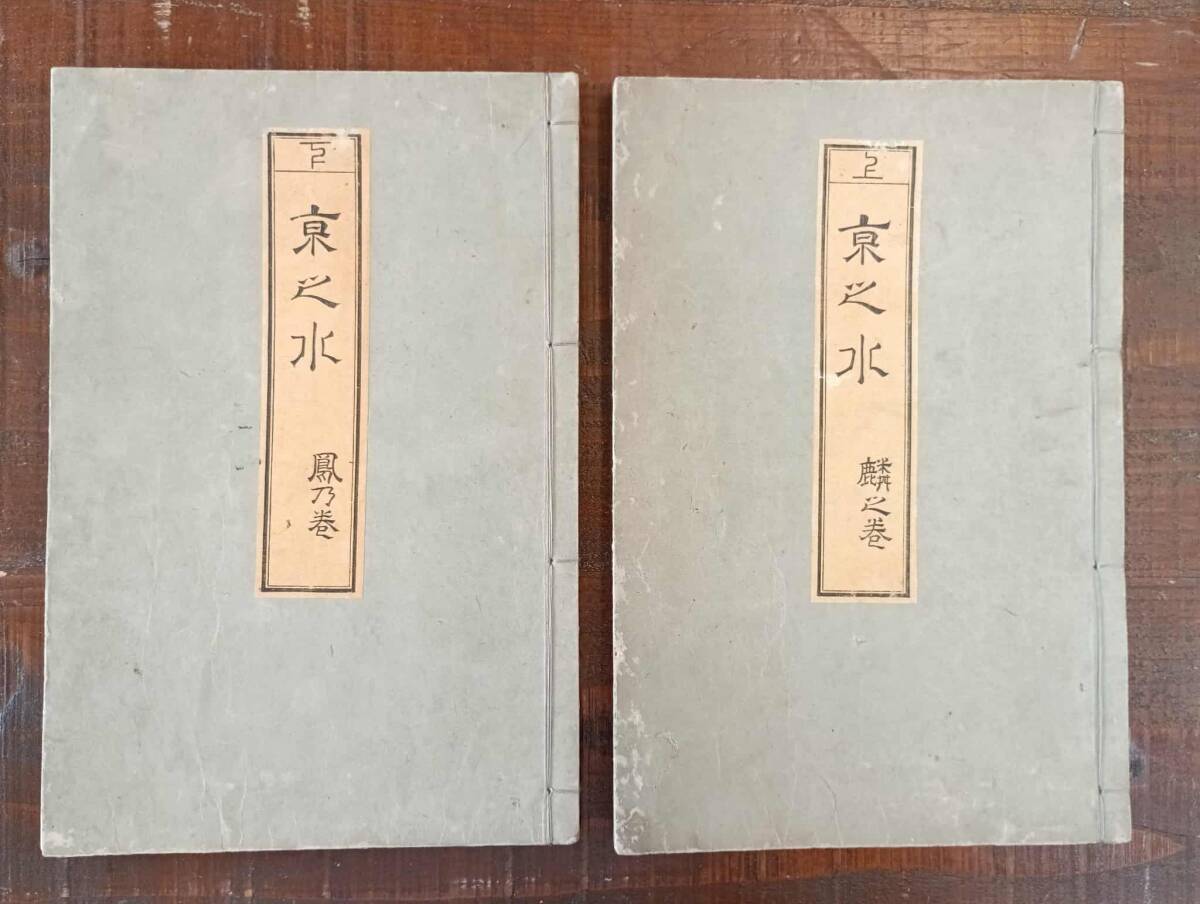 上
亰之水
麟之巻
下
亰之水
鳳乃巻